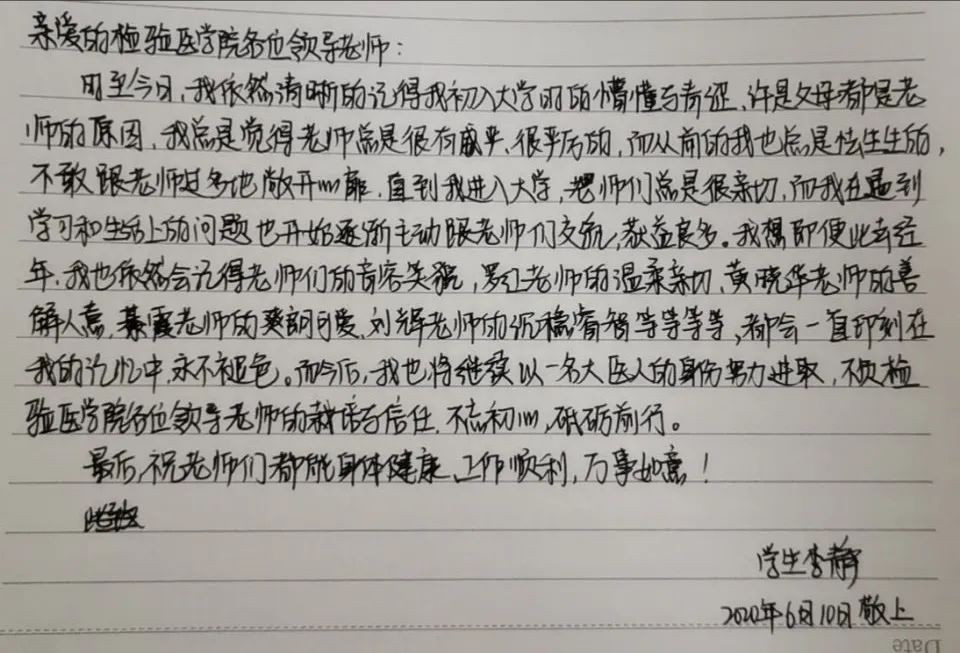 亲爱的检验医学院各位领导老师:
时至今日,我依然清晰的记得我初入大学时的懵懂与青涩,许是父母都是老
师的原因,我总是觉得老师总是很有威严、很严厉的,而从前的我也总是怯生生的,
不敢跟老师过多地敞开心扉。直到我进入大学,老师们总是很亲切,而我在遇到
学习和生活上的问题也开始逐渐主动跟老师们交流,获益良多。我想即便此去经
年,我也依然会记得老师们的音容笑貌,罗江老师的温柔亲切,黄晓华老师的善
解人意,綦霞老师的爽朗可爱,刘辉老师的沉稳睿智等等等等,都会一直印刻在
我的记忆中,永不褪色。而今后,我也将继续以一名大医人的身份努力进取,不负检
验医学院各位领导老师的栽培与信任,不忘初心,砥砺前行。
最后,祝老师们都能身体健康、工作顺利,万事如意!
学生李静
2020年6月10日敬上
Date